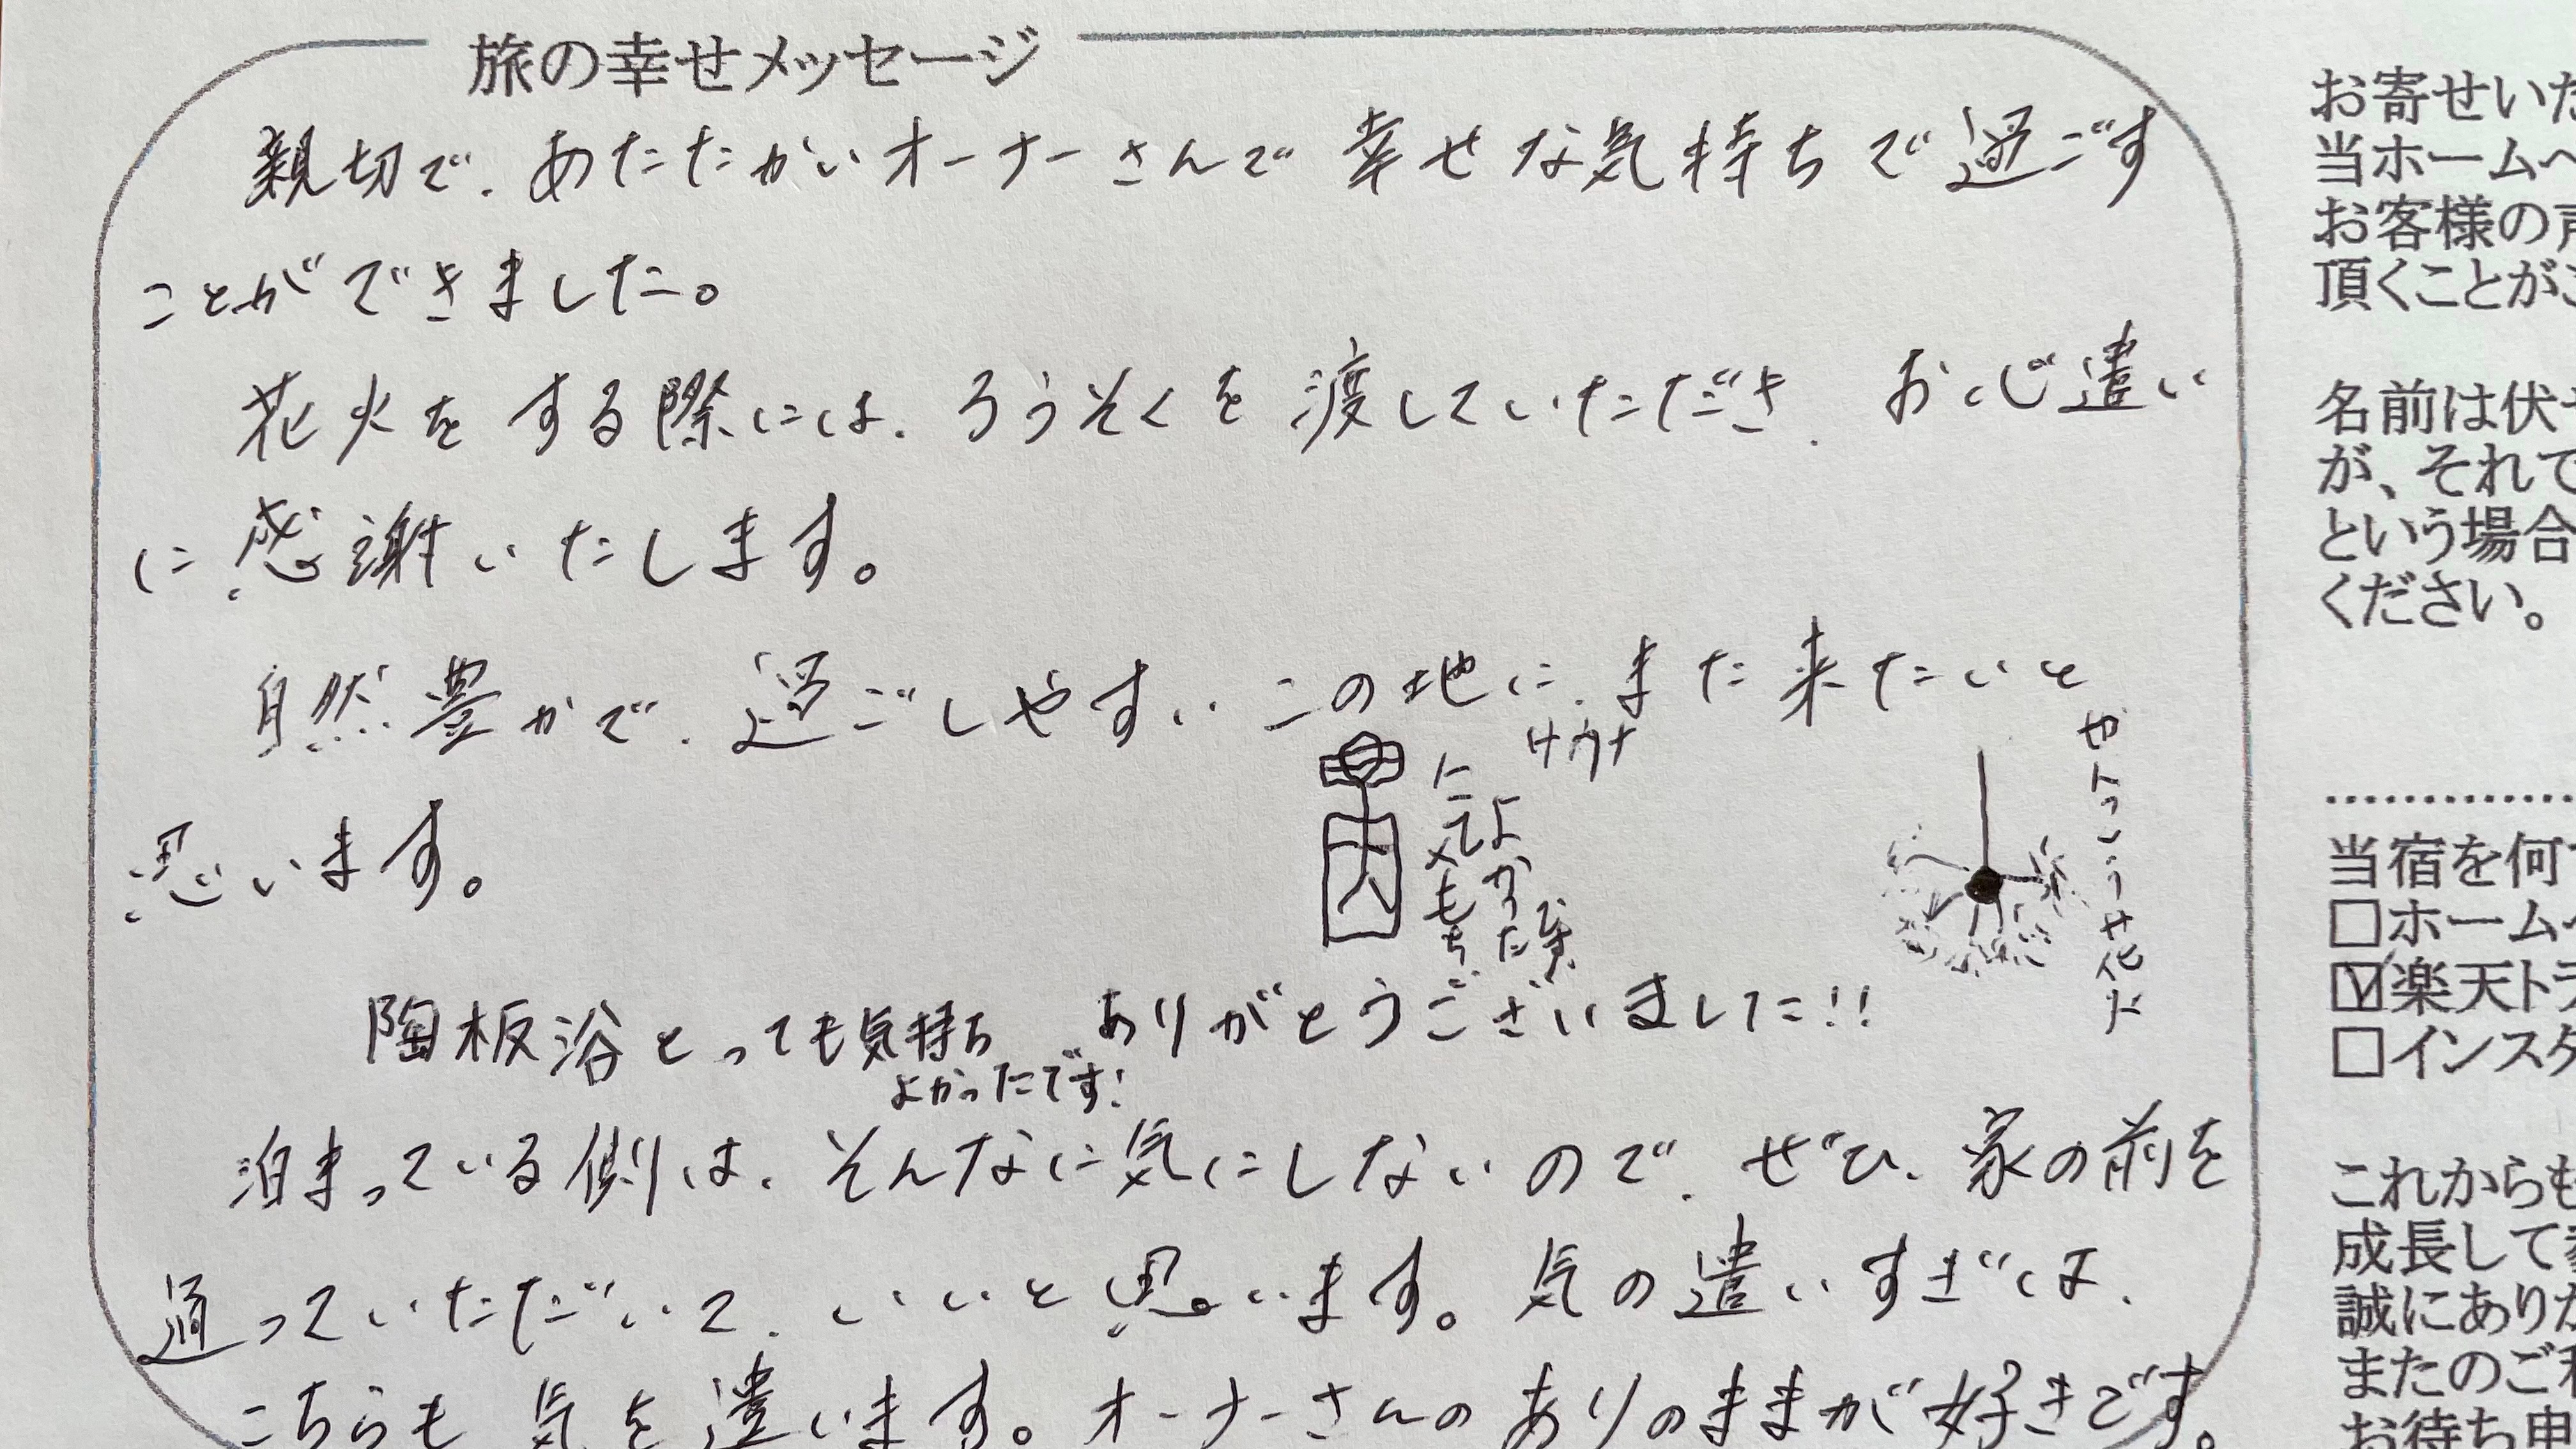 旅の幸せメッセージ
親切で、あたたかいオーナーさんで幸せな気持ちで過ごす
ことができました。
花火をする際には、ろうそくを渡していただき、お心遣い
に感謝いたします。
自然豊かで、過ごしやすい この地に、また来たいと
思います。
サウナ
よかったです
せんこう花火
陶板浴とっても気持ち
よかったです!
ありがとうございました!!
泊まっている側は、そんなに気にしないので、ぜひ、家の前を
通っていただいて、いいと思います。気の遣いすぎは、
こちらも気を遣います。オーナーさんのありのままが好きです。
お寄せいた
当ホームペ
お客様の声
頂くことがご
名前は伏せ
が、それで
という場合
ください。
当宿を何で
□ホームペ
☑楽天トラ
□インスタ
これからも
成長して
誠にありが
またのご利
お待ち申